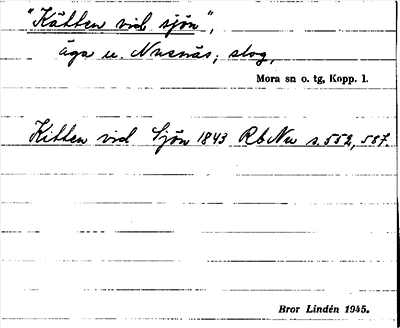 "Kätten vid sjön",
äga u. Nusnäs; slog,
Mora sn o. tg, Kopp. l.
Kitten vid Sjön 1843 Rb Nu s. 552, 587.
Bror Lindén 1945.